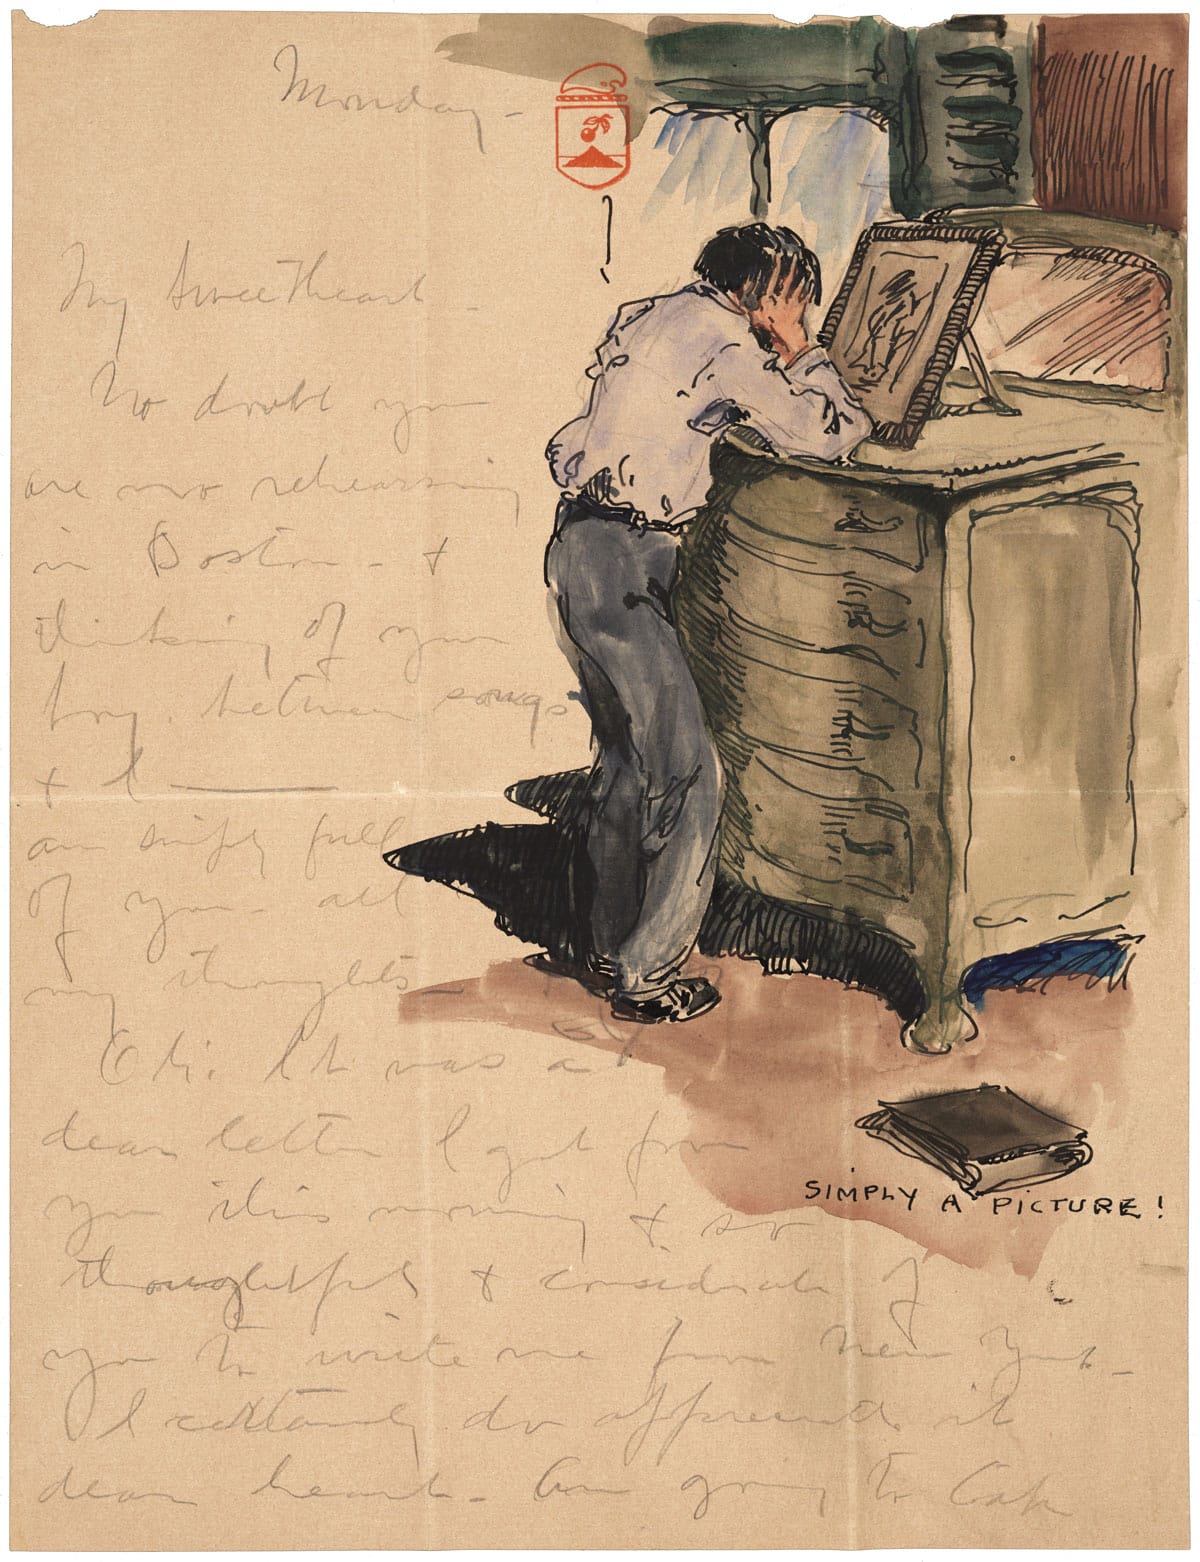 Monday -
My Sweetheart -
No doubt you
are now rehearsing
in Boston - +
thinking of your
boy. between songs
+ I ———
am simply full
of you - all
my thoughts -
Oh! It was a
dear letter I got from
you this morning + so
thoughtful + considerate of
you to write me from New York -
I certainly do appreciate it
dear heart - Am going to
SIMPLY A PICTURE!